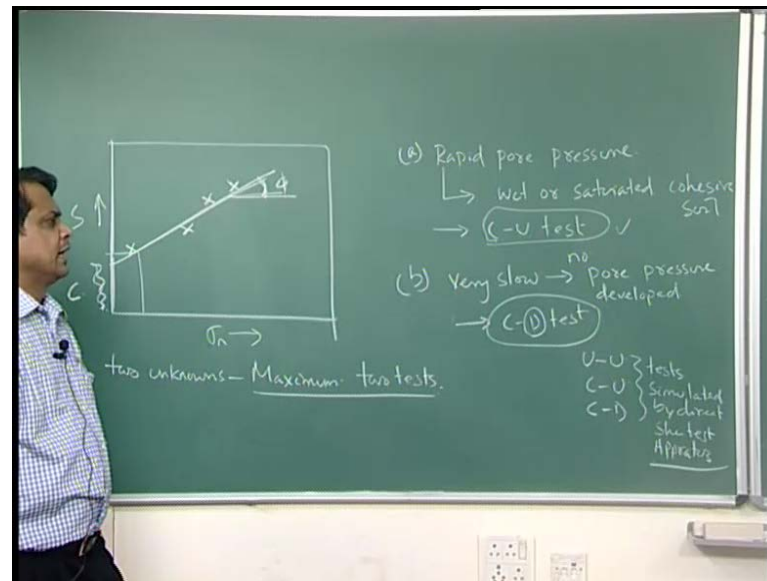 S ↑
C
ϕ
σn →
two unknowns – Maximum two tests.
(a) Rapid pore pressure.
↳ wet or saturated cohesive
soil
→ C-U test ✓
(b) very slow → no pore pressure
developed
→ C-D test
U-U } tests
C-U } Simulated
C-D } by direct
Shetest
Appratus